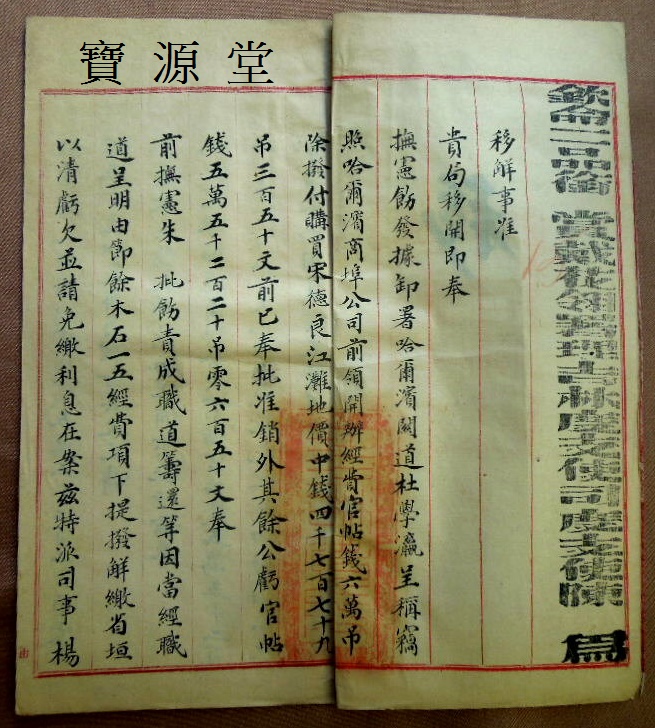 寶源堂
欽命二品銜賞戴花翎署理吉林度支使司度支使陳
為
移解事准
貴局移開即奉
撫憲飭發據卸署哈爾濱關道杜學瀛呈稱竊
照哈爾濱商埠公司前領開辦經費官帖錢六萬吊
除撥付購買宋德良江灘地價中錢四千七百七十九
吊三百五十文前已奉批准銷外其餘公虧官帖
錢五萬五千二百二十吊零六百五十文奉
前撫憲朱 批飭責成職道籌還等因當經職
道呈明由節餘木石一五經費項下提撥解繳省垣
以清虧欠並請免繳利息在案茲特派司事楊